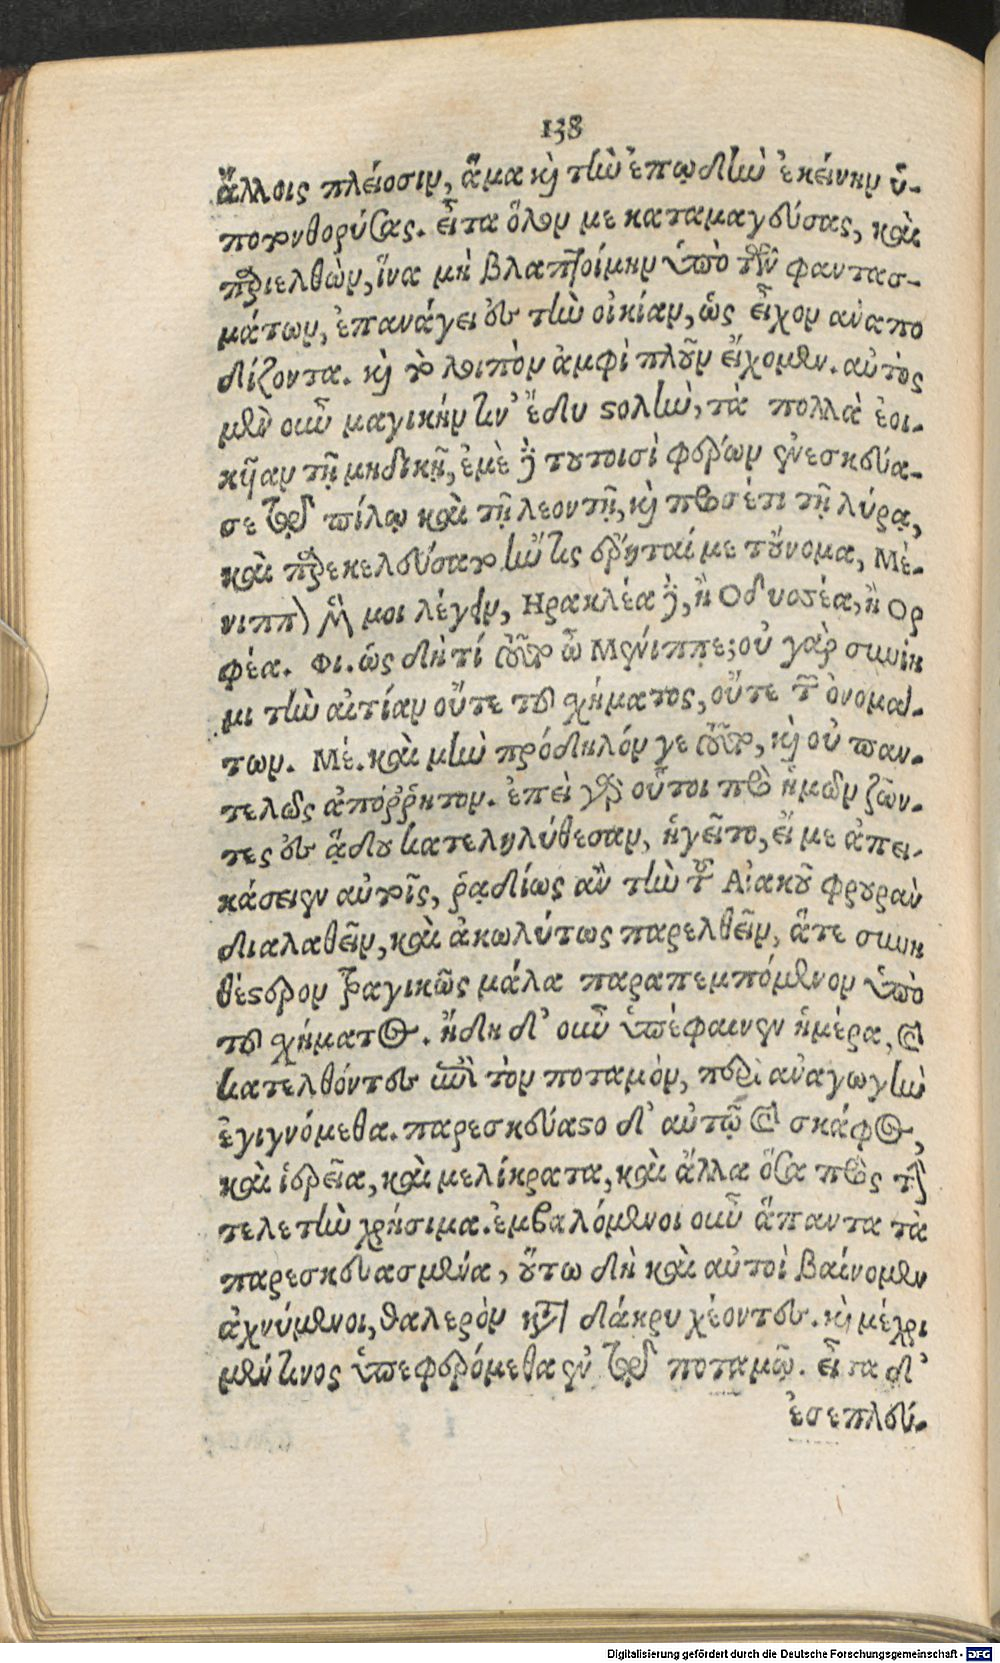 138
ἄλλοις πλείοσιν, ἅμα καὶ τὴν ἐπῳδὴν ἐκείνην ὑ-
ποτονθορύσας. εἶτα ὅλον με καταμαγεύσας, καὶ
περιελθὼν, ἵνα μὴ βλαπτοίμην ὑπὸ τῶν φαντασ-
μάτων, ἐπανάγει ἐς τὴν οἰκίαν, ὡς εἶχον ἀναπο
δίζοντα. καὶ τὸ λοιπὸν ἀμφὶ πλοῦν εἴχομεν. αὐτὸς
μὲν οὖν μαγικήν τιν' ἔδυ στολὴν, τὰ πολλὰ ἐοι-
κῦαν τῇ μηδικῇ, ἐμὲ δὲ τουτοισὶ φέρων ἐνεσκεύα-
σε τῷ πίλῳ καὶ τῇ λεοντῇ, καὶ προσέτι τῇ λύρᾳ,
καὶ παρεκελεύσατο ἢν τις ἔρηταί με τοὔνομα, Μέ-
νιππον μὴ μοι λέγειν, Ηρακλέα δὲ, ἢ Οδυσσέα, ἢ Ορ
φέα. Φι. ὡς δὴ τί τοῦτο ὦ Μένιππε; οὐ γὰρ συνίη
μι τὴν αἰτίαν οὔτε τοῦ σχήματος, οὔτε τῶν ὀνομά-
των. Μέ. καὶ μὴν πρόδηλόν γε τοῦτο, καὶ οὐ παν-
τελῶς ἀπόῤῥητον. ἐπεὶ γὰρ οὗτοι πρὸ ἡμῶν ζῶν-
τες ἐς ᾅδου κατεληλύθεσαν, ἡγεῖτο, εἴ με ἀπει-
κάσειεν αὐτοῖς, ῥᾳδίως ἂν τὴν τοῦ Αἰακοῦ φρουρὰν
διαλαθεῖν, καὶ ἀκωλύτως παρελθεῖν, ἅτε συνη
θέστερον τραγικῶς μάλα παραπεμπόμενον ὑπὸ
τοῦ σχήματος. ἤδη δ' οὖν ὑπέφαινεν ἡμέρα, καὶ
κατελθόντες ἐπὶ τὸν ποταμὸν, περὶ ἀναγωγὴν
ἐγιγνόμεθα. παρεσκεύαστο δ' αὐτῷ καὶ σκάφος,
καὶ ἱερεῖα, καὶ μελίκρατα, καὶ ἄλλα ὅσα πρὸς τὴν
τελετὴν χρήσιμα. ἐμβαλόμενοι οὖν ἅπαντα τὰ
παρεσκευασμένα, οὕτω δὴ καὶ αὐτοὶ βαίνομεν
ἀχνύμενοι, θαλερὸν κατὰ δάκρυ χέοντες. καὶ μέχρι
μέν τινος ὑπεφερόμεθα ἐν τῷ ποταμῷ. εἶτα δ'
ἐσεπλεύ-
Digitalisierung gefördert durch die Deutsche Forschungsgemeinschaft - DFG